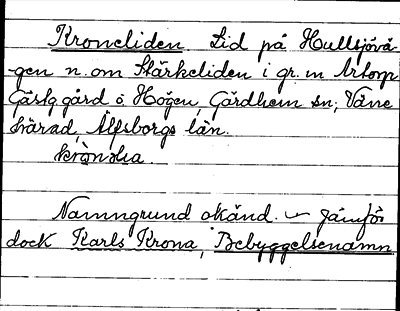 Kroneliden. Lid på Hullsjövä-
gen n. om Stärkeliden i gr. m Artorp
Gästg. gård ö. Högen, Gärdhem sn, Väne
härad, Älfsborgs län.
Namngrund okänd. – Jämför
dock Karls Krona, Bebyggelsenamn